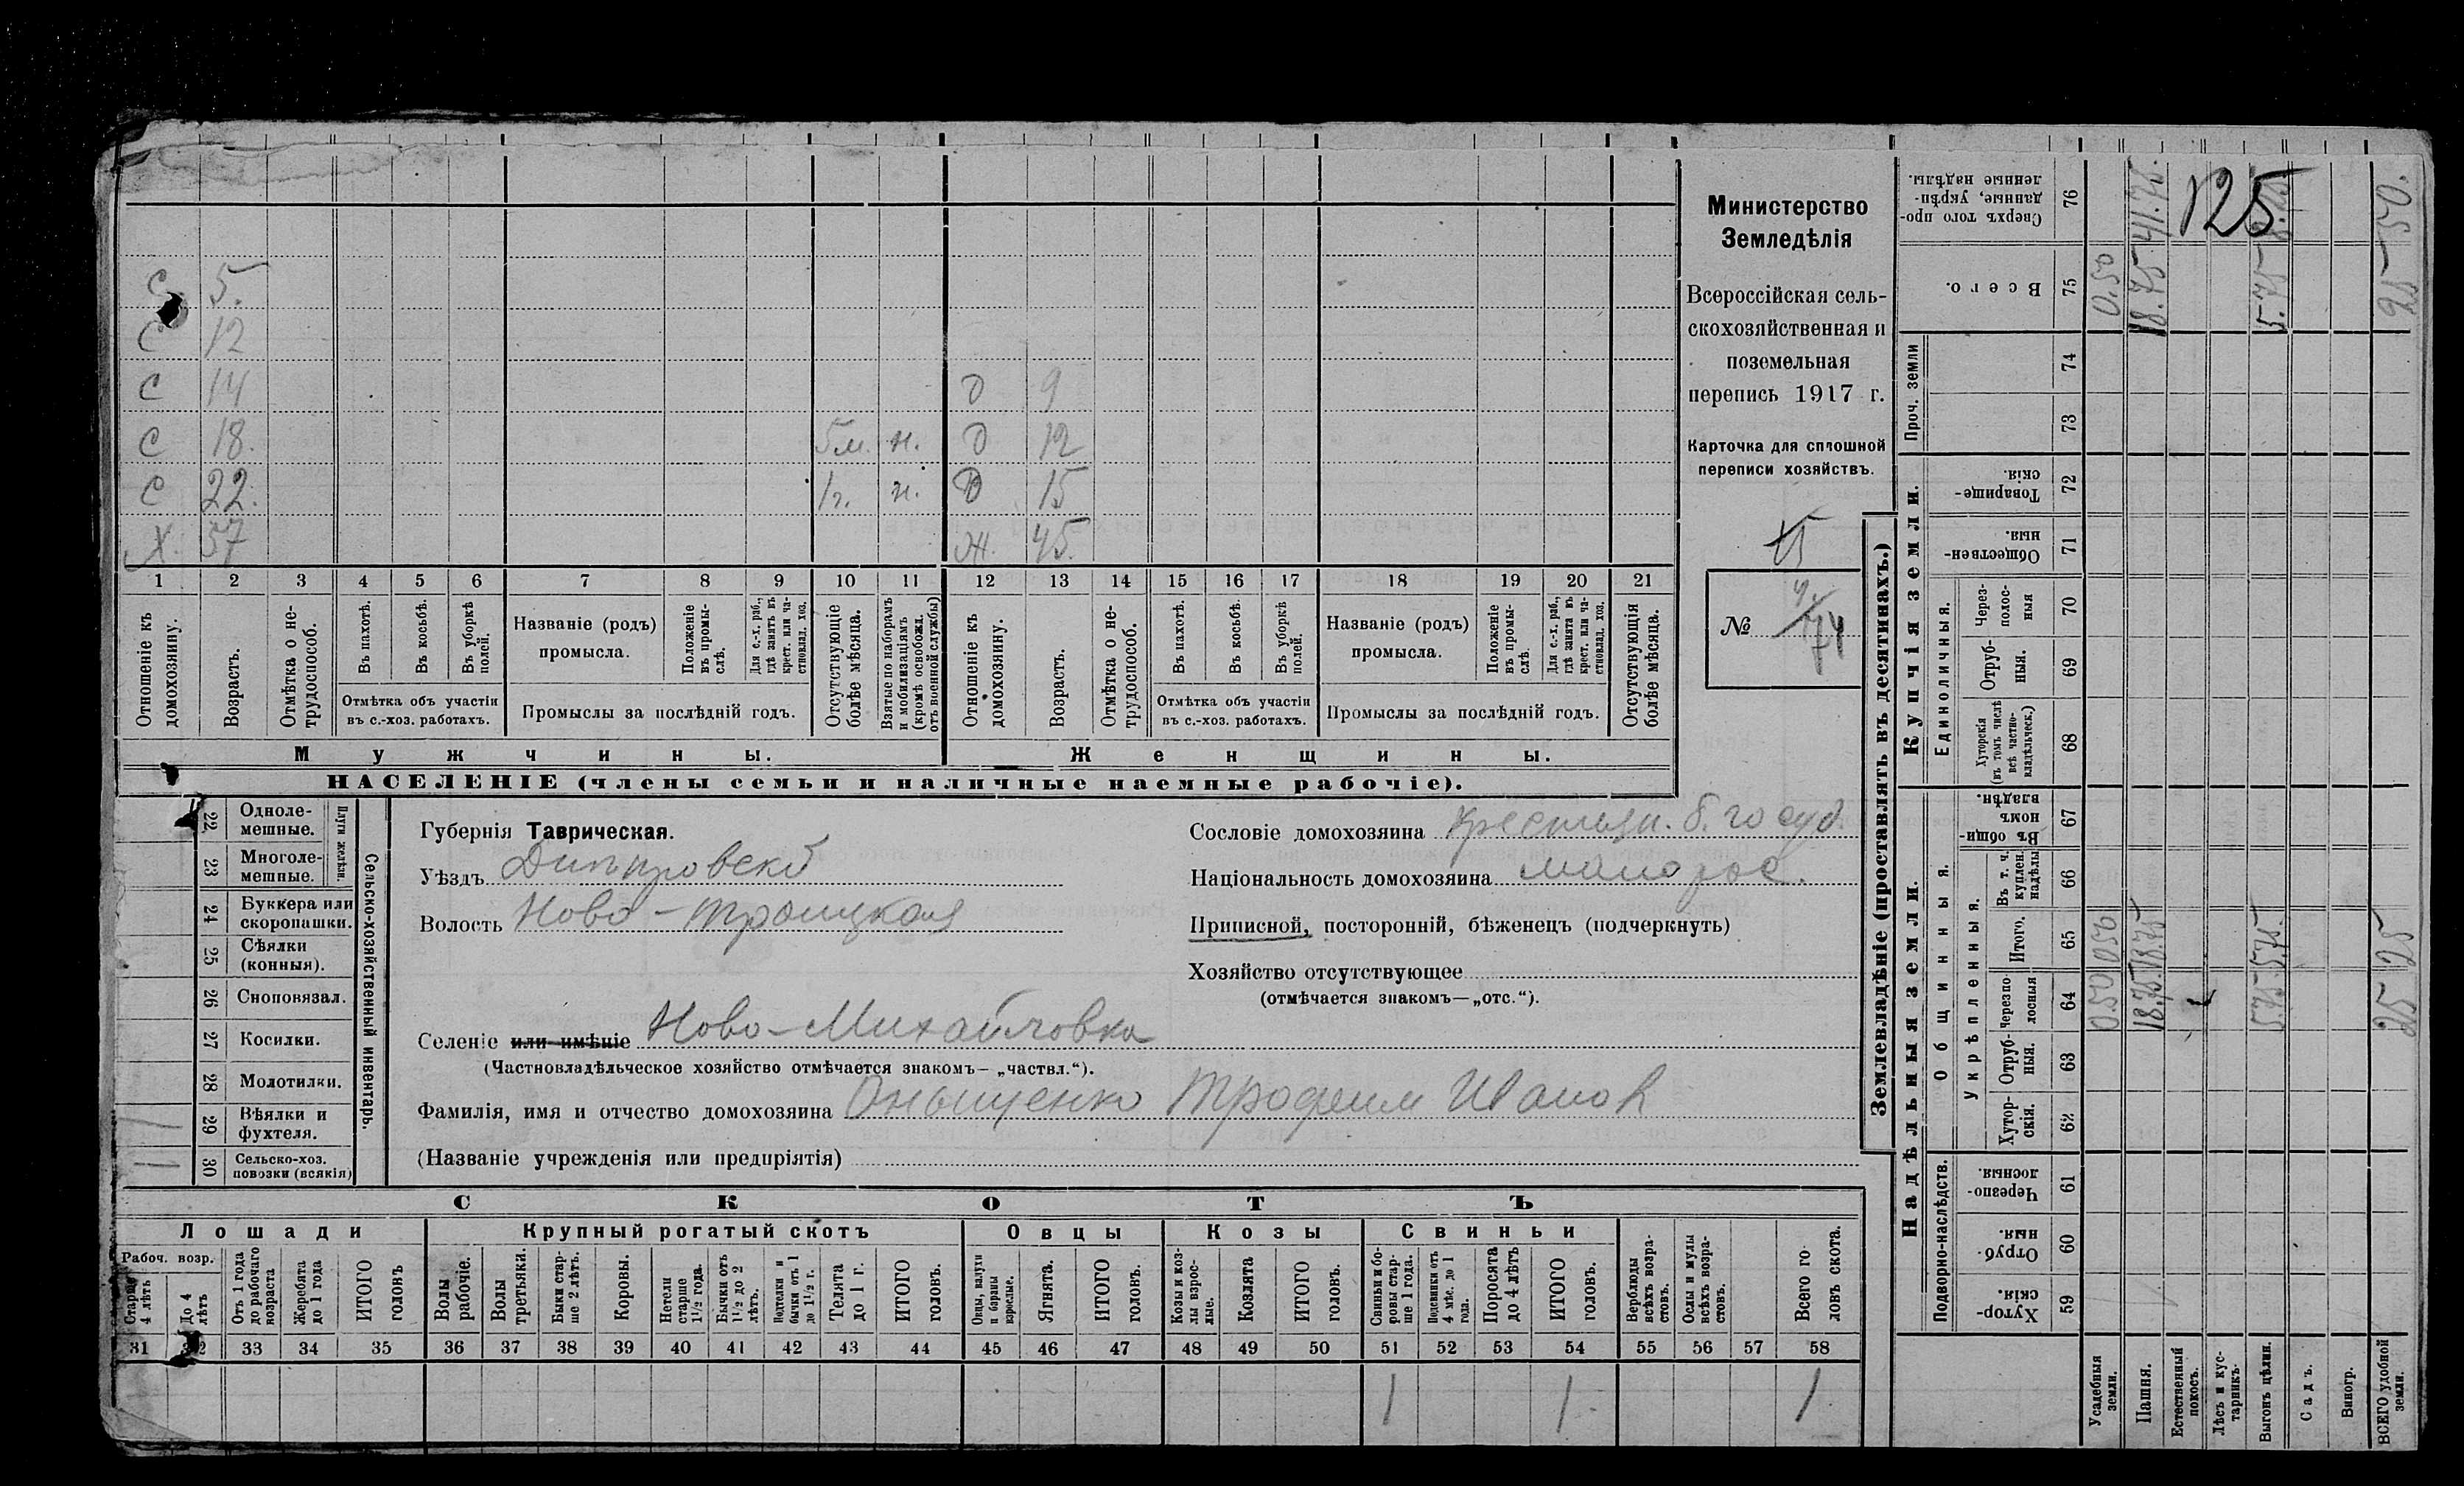 С 5.
С 12
С 14 д 9
С 18. 5м. н. д 12
С 22. 1г. н. д 15
Х. 57 Ж. 45.
1 2 3 4 5 6 7 8 9 10 11 12 13 14 15 16 17 18 19 20 21
Отношеніе къ домохозяину.
Возрастъ.
Отмѣтка о не-
трудоспособ.
Въ пахотѣ.
Въ косьбѣ.
Въ уборкѣ
полей.
Отмѣтка объ участіи
въ с.-хоз. работахъ.
Названіе (родъ)
промысла.
Положеніе
въ промы-
слѣ.
Для с.-х. раб.,
гдѣ занятъ въ
крест. или ча-
стновлад. хоз.
Промыслы за послѣдній годъ.
Отсутствующіе
болѣе мѣсяца.
Взятые по наборамъ
и мобилизаціямъ
(кромѣ освобожд.
отъ военной службы)
Отношеніе къ
домохозяину.
Возрастъ.
Отмѣтка о не-
трудоспособ.
Въ пахотѣ.
Въ косьбѣ.
Въ уборкѣ
полей.
Отмѣтка объ участіи
въ с.-хоз. работахъ.
Названіе (родъ)
промысла.
Положеніе
въ промы-
слѣ.
Для с.-х. раб.,
гдѣ занята въ
крест. или ча-
стновлад. хоз.
Промыслы за послѣдній годъ.
Отсутствующія
болѣе мѣсяца.
Мужчины.
Женщины.
НАСЕЛЕНІЕ (члены семьи и наличные наемные рабочіе).
Министерство
Земледѣлія
Всероссійская сель-
скохозяйственная и
поземельная
перепись 1917 г.
Карточка для сплошной
переписи хозяйствъ.
15
№ 74
22 Одноле-
мешные.
23 Многоле-
мешные.
Плуги желѣзн.
24 Буккера или
скоропашки.
25 Сѣялки
(конныя).
26 Сноповязал.
27 Косилки.
28 Молотилки.
29 Вѣялки и
фухтеля.
1 30 Сельско-хоз.
повозки (всякія)
Сельско-хозяйственный инвентарь.
Губернія Таврическая.
Уѣздъ Днѣпровскій
Волость Ново-Троицкая
Сословіе домохозяина крестьян. б. госуд.
Національность домохозяина малорос.
Приписной, посторонній, бѣженецъ (подчеркнуть)
Хозяйство отсутствующее
(отмѣчается знакомъ—„отс.“).
Селеніе или имѣніе Ново-Михайловка
(Частновладѣльческое хозяйство отмѣчается знакомъ—„частвл.“).
Фамилія, имя и отчество домохозяина Оныщенко Трофим Иванов
(Названіе учрежденія или предпріятія)
СКОТЪ
Лошади Крупный рогатый скотъ Овцы Козы Свиньи
Рабоч. возр.
Старше
4 лѣтъ
До 4
лѣтъ
Отъ 1 года
до рабочаго
возраста
Жеребята
до 1 года
ИТОГО
головъ
Волы
рабочіе.
Волы
третьяки.
Быки стар-
ше 2 лѣтъ.
Коровы.
Нетели
старше
1½ года.
Бычки отъ
1½ до 2
лѣтъ.
Подтелки и
бычки отъ 1
до 1½ г.
Телята
до 1 г.
ИТОГО
головъ.
Овцы, валухи
и бараны
взрослые.
Ягнята.
ИТОГО
головъ.
Козы и коз-
лы взрос-
лые.
Козлята
ИТОГО
головъ.
Свиньи и бо-
ровы стар-
ше 1 года.
Подсвинки отъ
4 мѣс. до 1
года.
Поросята
до 4 лѣтъ
ИТОГО
головъ.
Верблюды
всѣхъ возра-
стовъ.
Ослы и мулы
всѣхъ возра-
стовъ.
Всего го
ловъ скота.
31 32 33 34 35 36 37 38 39 40 41 42 43 44 45 46 47 48 49 50 51 52 53 54 55 56 57 58
1 1 1
Землевладѣніе (проставлять въ десятинахъ.)
Надѣльныя земли.
Купчія земли.
Проч. земли
Подворно-наслѣдств.
Общинныя.
Укрѣпленныя.
Единоличныя.
Сверхъ того про-
данные, укрѣп-
ленные надѣлы.
76
Всего.
75
74
73
Товарище-
скія.
72
Обществен-
ныя.
71
Через-
полос-
ныя
70
Отруб-
ныя.
69
Хуторскія
(въ томъ числѣ
всѣ частно-
владѣльческ.)
68
Въ общи-
номъ
владѣн.
67
Въ т. ч.
куплен.
надѣлы
66
Итого.
65
Черезпо
лосныя
64
Отруб-
ныя.
63
Хутор-
скія.
62
Черезпо-
лосныя.
61
Отруб-
ныя.
60
Хутор-
скія.
59
Усадебныя
земли.
0.50 0.50 0.50
Пашня.
18.75 18.75 18.75 41.75.
Естественный
покосъ.
125
Лѣсъ и кус-
тарникъ.
Выгонъ цѣлин.
5.75 5.75. 5.75
Садъ.
Виногр.
ВСЕГО удобной
земли.
25 25 25 50.